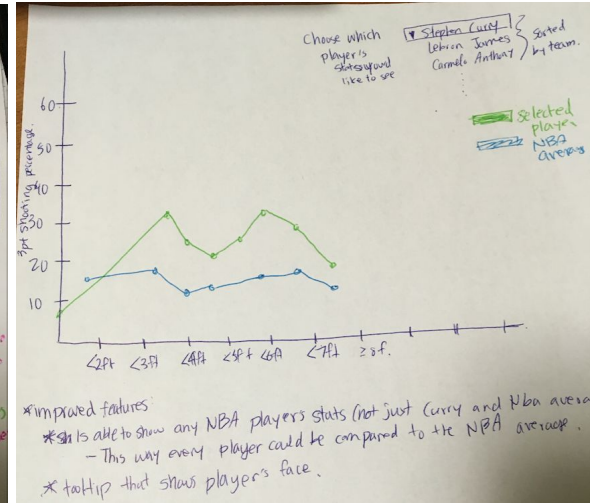 Choose which
player's
stats you would
like to see
▼ Stephen Curry
Lebron James
Carmelo Anthony
sorted
by team.
selected
player
NBA
average
3pt shooting percentage
60
50
40
30
20
10
<2ft <3ft <4ft <5ft <6ft <7ft ≥8f.
*improved features
* Is able to show any NBA players stats (not just Curry and Nba avera
- This way every player could be compared to the NBA average.
* tooltip that shows player's face.